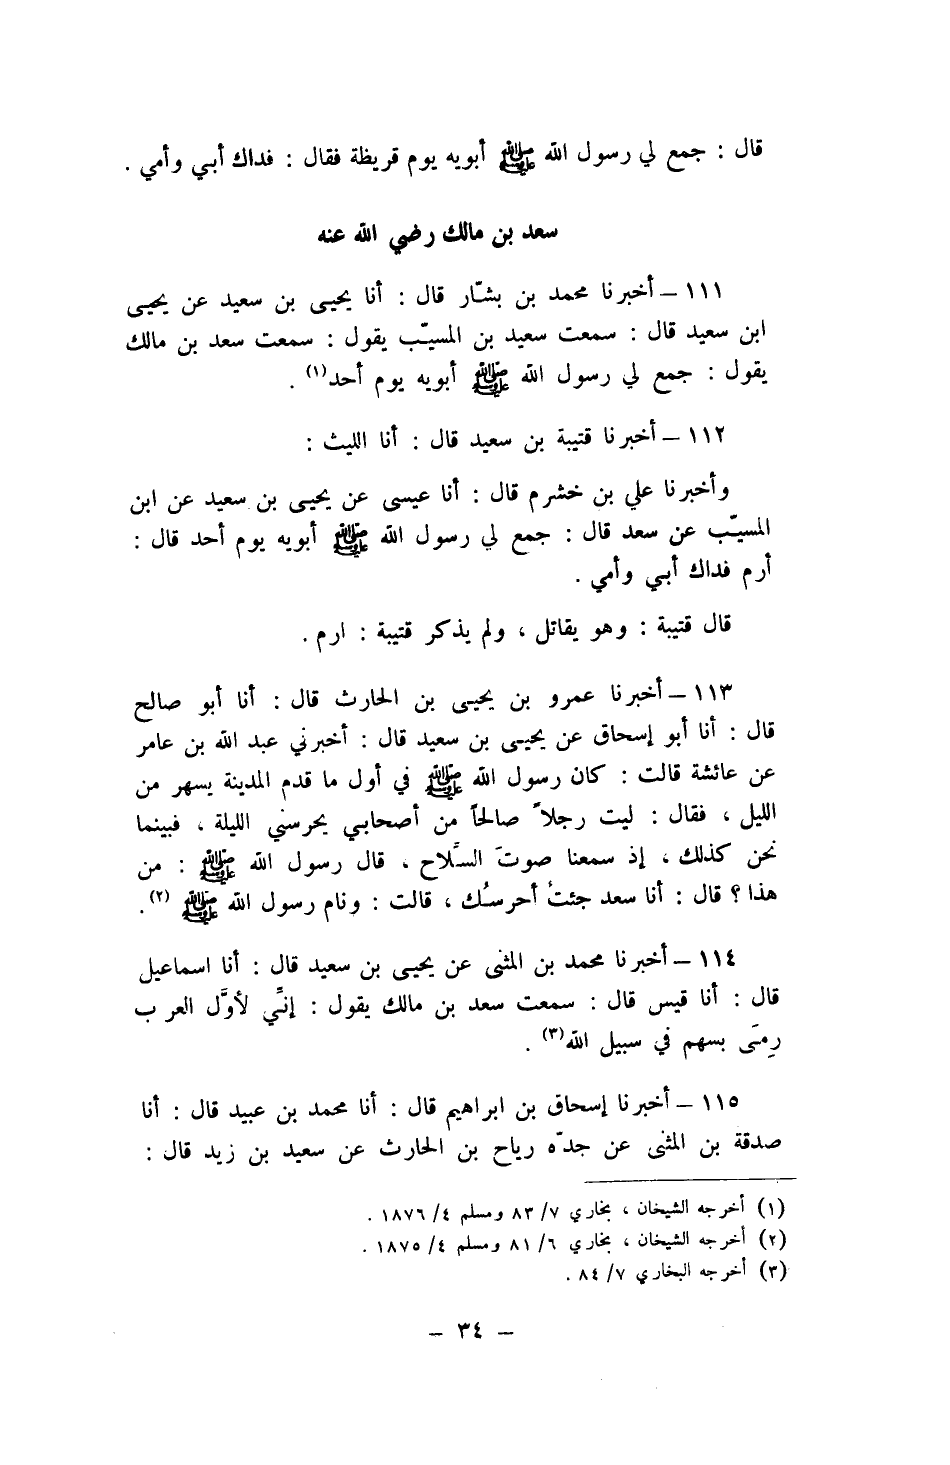 قال : جمع لي رسول الله ﷺ أبويه يوم قريظة فقال : فداك أبي وأمي .
سعد بن مالك رضي الله عنه
١١١ – أخبرنا محمد بن بشّار قال : أنا يحيى بن سعيد عن يحيى
ابن سعيد قال : سمعت سعيد بن المسيّب يقول : سمعت سعد بن مالك
يقول : جمع لي رسول الله ﷺ أبويه يوم أحد(١) .
١١٢ – أخبرنا قتيبة بن سعيد قال : أنا الليث :
وأخبرنا علي بن خشرم قال : أنا عيسى عن يحيى بن سعيد عن ابن
المسيّب عن سعد قال : جمع لي رسول الله ﷺ أبويه يوم أحد قال :
أرم فداك أبي وأمي .
قال قتيبة : وهو يقاتل ، ولم يذكر قتيبة : ارم .
١١٣ – أخبرنا عمرو بن يحيى بن الحارث قال : أنا أبو صالح
قال : أنا أبو إسحاق عن يحيى بن سعيد قال : أخبرني عبد الله بن عامر
عن عائشة قالت : كان رسول الله ﷺ في أول ما قدم المدينة يسهر من
الليل ، فقال : ليت رجلاً صالحاً من أصحابي يحرسني الليلة ، فبينما
نحن كذلك ، إذ سمعنا صوتَ السَّلاح ، قال رسول الله ﷺ : من
هذا ؟ قال : أنا سعد جئتُ أحرسُك ، قالت : ونام رسول الله ﷺ (٢).
١١٤ – أخبرنا محمد بن المثنى عن يحيى بن سعيد قال : أنا اسماعيل
قال : أنا قيس قال : سمعت سعد بن مالك يقول : إنِّي لأوَّل العرب
رمَى بسهم في سبيل الله(٣) .
١١٥ – أخبرنا إسحاق بن ابراهيم قال : أنا محمد بن عبيد قال : أنا
صدقة بن المثنى عن جدّه رياح بن الحارث عن سعيد بن زيد قال :
(١) أخرجه الشيخان ، بخاري ٧/ ٨٣ ومسلم ٤/ ١٨٧٦ .
(٢) أخرجه الشيخان ، بخاري ٦/ ٨١ ومسلم ٤/ ١٨٧٥ .
(٣) أخرجه البخاري ٧/ ٨٤ .
– ٣٤ –